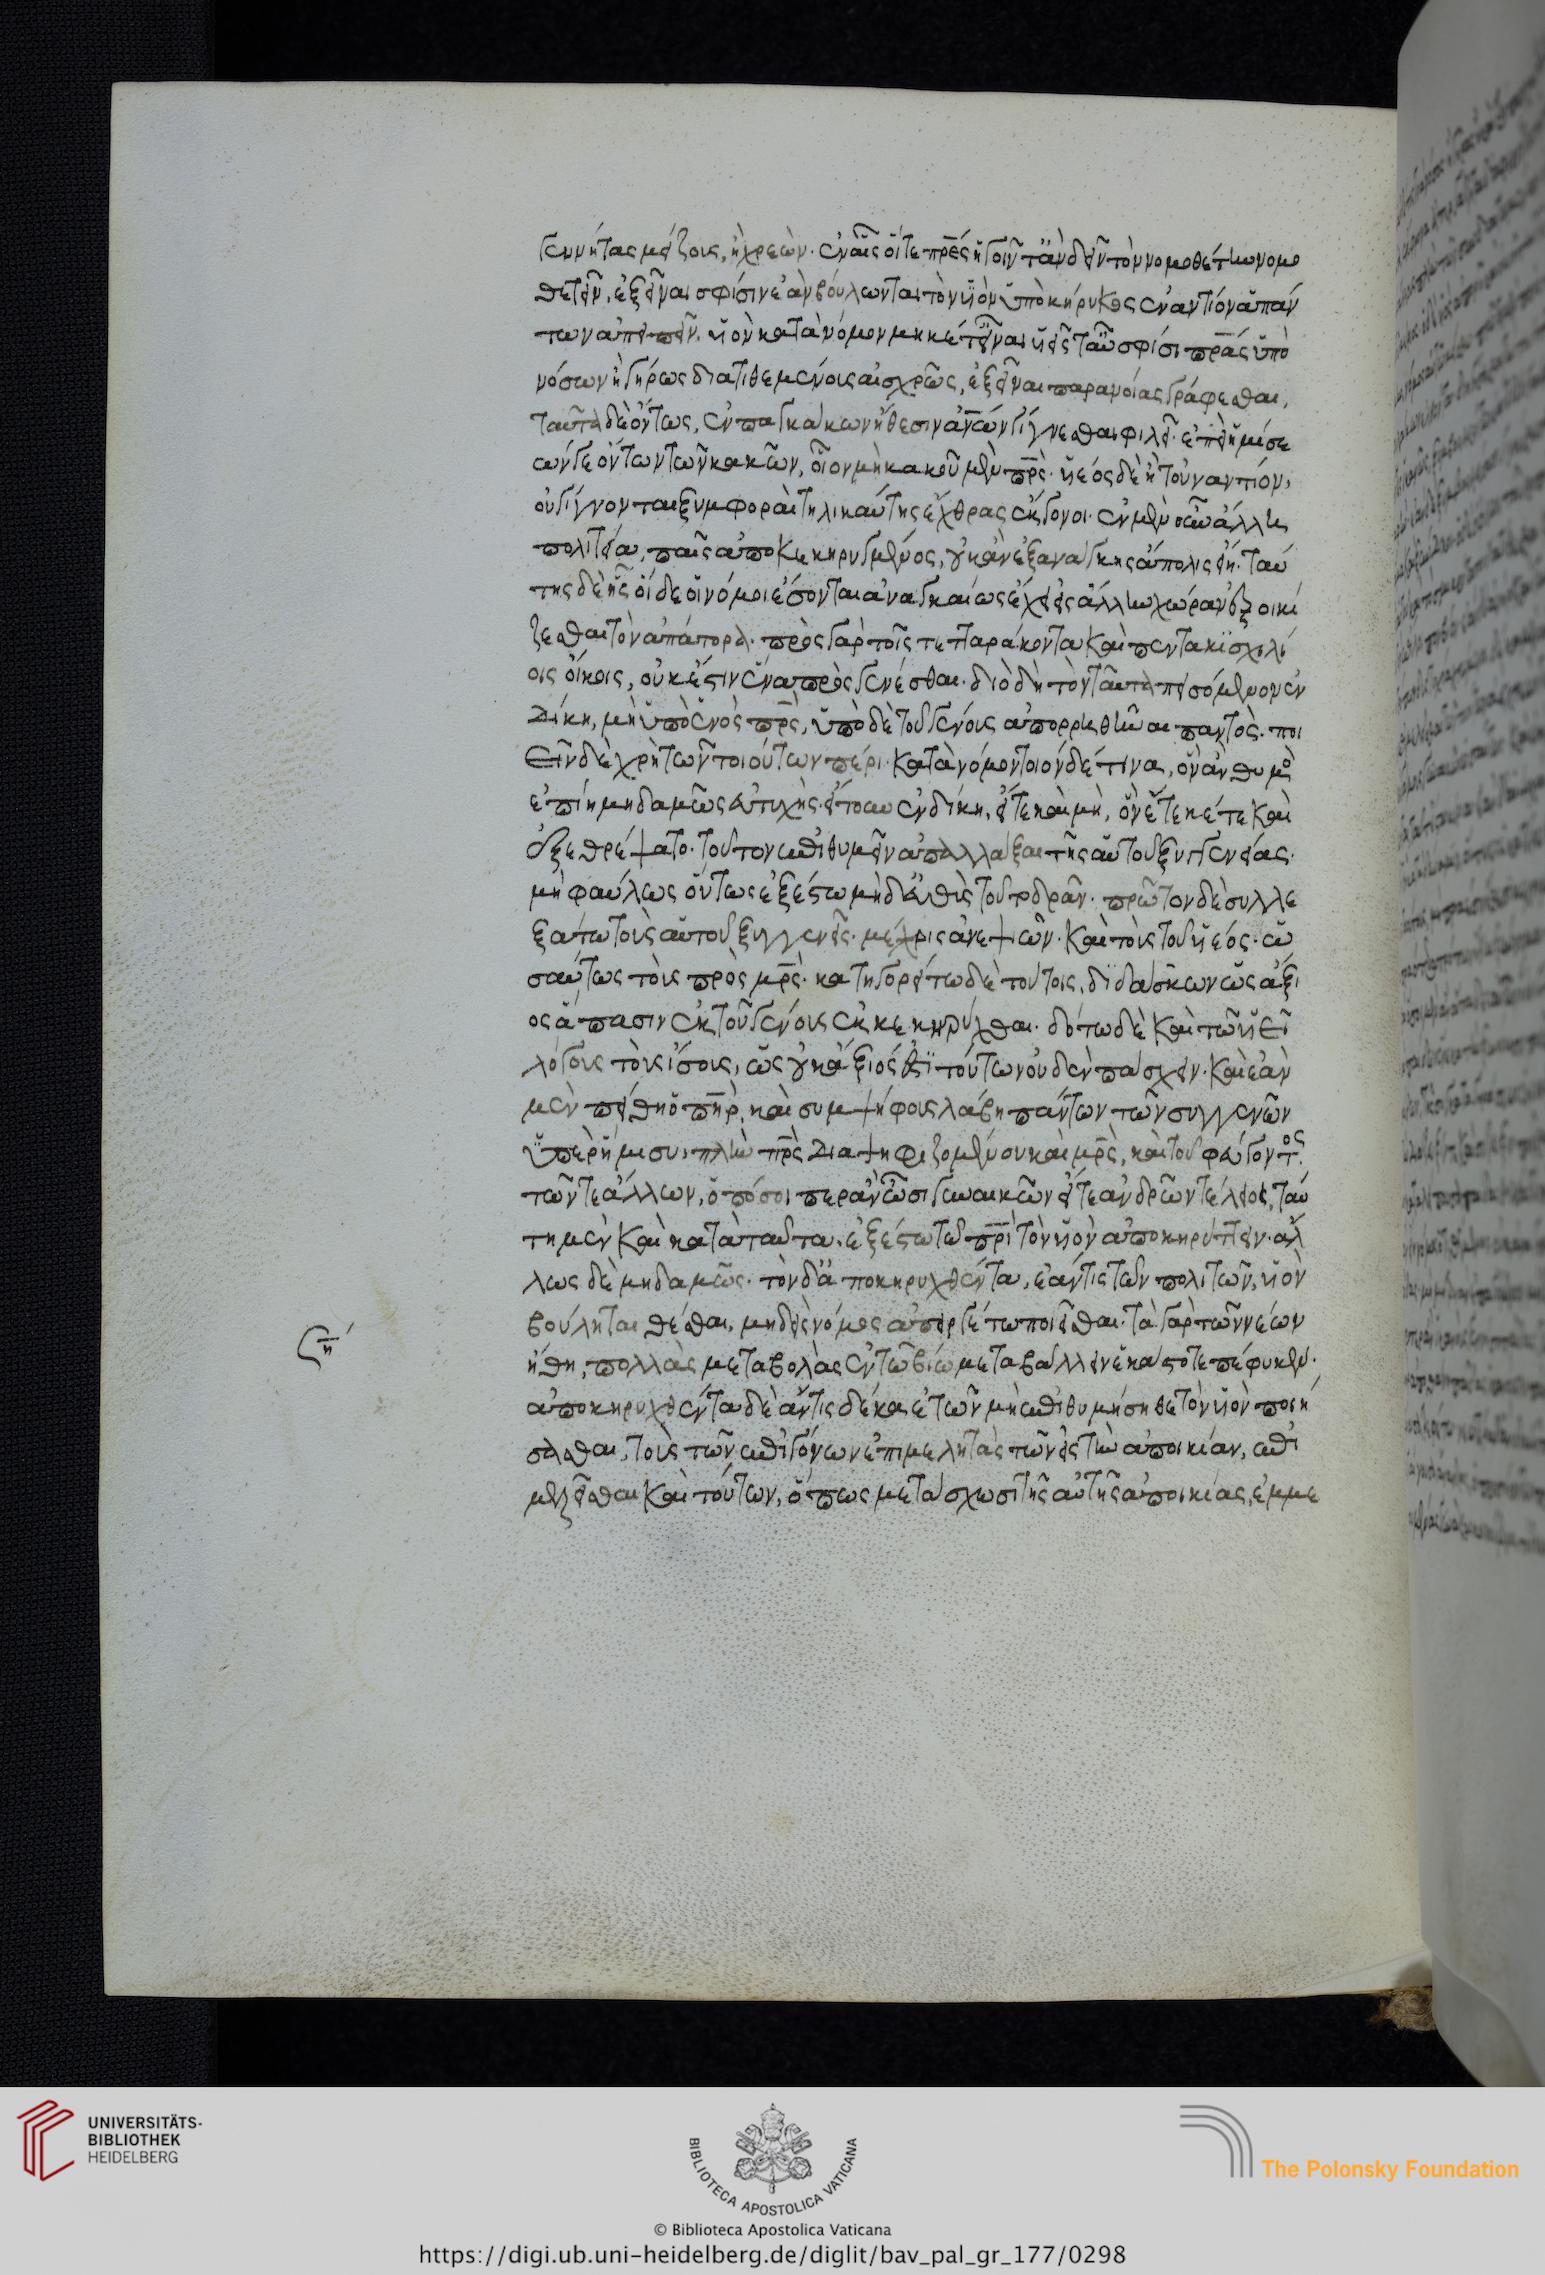 γεννήτας μείζους, ἢ χρεών. ἐν αἷς οἵ τε πρες ἡγοῖντ' ἂν δεῖν τὸν νομοθέτην νομο
θετεῖν, ἐξεῖναι σφίσιν ἐὰν βούλωνται τὸν ὑὸν ὑπὸ κήρυκος ἐναντίον ἁπάν
των ἀπειπεῖν. ὑὸν κατὰ νόμον μηκέτ' εἶναι ὑεῖς τ' αὖ σφίσι πρας ὑπὸ
νόσων ἢ γήρως διατιθεμένους αἰσχρῶς, ἐξεῖναι παρανοίας γράφεσθαι,
ταῦτα δὲ ὄντως, ἐν παγκάκων ἤθεσιν ἀνων γίγνεσθαι φιλεῖ· ἐπεὶ ἡμίσε
ών γε ὄντων τῶν κακῶν, οἷον μὴ κακοῦ μὲν πρς· ὑέος δὲ ἢ τοὐναντίον,
οὐ γίγνονται ξυμφοραὶ τηλικαύτης ἔχθρας ἔκγονοι. ἐν μὲν οὖν ἄλλη
πολιτεία, παῖς ἀποκεκηρυγμένος, οὐκ ἂν ἐξ ἀνάγκης ἄπολις εἴη. ταύ
της δὲ ἧς οἵδε οἱ νόμοι ἔσονται ἀναγκαίως ἔχει εἰς ἄλλην χώραν ἐξοικί
ζεσθαι τὸν ἀπάτορα. πρὸς γὰρ τοῖς τετταράκοντα καὶ πεντακισχιλί
οις οἴκοις, οὐκ ἔστιν ἕνα προσγενέσθαι. διὸ δὴ τὸν ταῦτα πεισόμενον ἐν
δίκη, μὴ ὑπὸ ἑνὸς πρς, ὑπὸ δὲ τοῦ γένους ἀπορρηθῆναι παντός. ποι
εῖν δὲ χρὴ τῶν τοιούτων πέρι κατὰ νόμον τοιόνδέ τινα, ὃν ἂν θυμὸς
ἐπίη μηδαμῶς εὐτυχής. εἴτ' οὖν ἐν δίκη, εἴτε καὶ μή, ὃν ἔτεκέ τε καὶ
ἐξεθρέψατο. τοῦτον ἐπιθυμεῖν ἀπαλλάξαι τῆς αὑτοῦ ξυγγενείας.
μὴ φαύλως οὕτως ἐξέστω μὴδ' εὐθὺς τοῦτο δρᾶν. πρῶτον δὲ συλλε
ξάτω τοὺς αὑτοῦ ξυγγενεῖς μέχρις ἀνεψιῶν. καὶ τοὺς τοῦ ὑέος ὡ
σαύτως τοὺς πρὸς μρς. κατηγορείτω δὲ τούτοις, διδάσκων ὡς ἄξι
ος ἅπασιν ἐκ τοῦ γένους ἐκκεκηρύχθαι. δότω δὲ καὶ τῶ ὑεῖ
λόγους τοὺς ἴσους, ὡς οὐκ ἄξιός ἐστι τούτων οὐδὲν πάσχειν. καὶ ἐὰν
μὲν πείθη ὁ πηρ, καὶ συμψήφους λάβη πάντων τῶν συγγενῶν
ὑπὲρ ἥμισυ, πλὴν πρς διαψηφιζομένου καὶ μρς, καὶ τοῦ φεύγοντος.
τῶν τε ἄλλων, ὁπόσοι περ ἂν ὦσι γυναικῶν εἴτε ἀνδρῶν τέλειοι, ταύ
τη μὲν καὶ κατὰ ταῦτα ἐξέστω τῶ πρι τὸν ὑὸν ἀποκηρύττειν. ἄλ
λως δὲ μηδαμῶς. τὸν δ' ἀποκηρυχθέντα, ἐάν τις τῶν πολιτῶν, ὑὸν
βούληται θέσθαι, μηδεὶς νόμος ἀπειργέτω ποιεῖσθαι. τὰ γὰρ τῶν νέων
ἤθη, πολλὰς μεταβολὰς ἐν τῶ βίω μεταβάλλειν ἑκάστοτε πέφυκεν.
ἀποκηρυχθέντα δὲ ἄν τις δέκα ἐτῶν μὴ ἐπιθυμήση θετὸν ὑὸν ποιή
σασθαι, τοὺς τῶν ἐπιγόνων ἐπιμελητὰς τῶν εἰς τὴν ἀποικίαν, ἐπι
μελεῖσθαι καὶ τούτων, ὅπως μετάσχωσι τῆς αὐτῆς ἀποικίας, ἐμμε
UNIVERSITÄTS-
BIBLIOTHEK
HEIDELBERG
BIBLIOTECA APOSTOLICA VATICANA
The Polonsky Foundation
© Biblioteca Apostolica Vaticana
https://digi.ub.uni-heidelberg.de/diglit/bav_pal_gr_177/0298